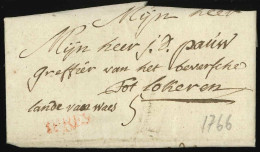 Mÿn heer
Mÿn heer J.D. pauw
greffier van het beversche
Tot lokeren
lande van waes
5
YPRES
1766